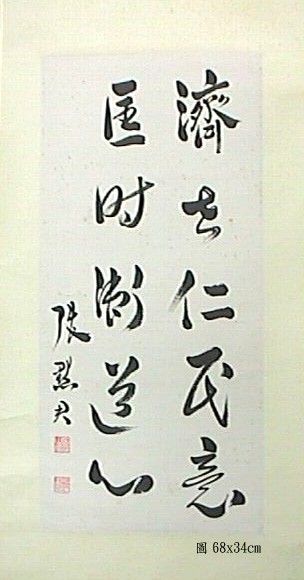 濟世仁民意
匡时衛道心
張默君
圖 68x34cm